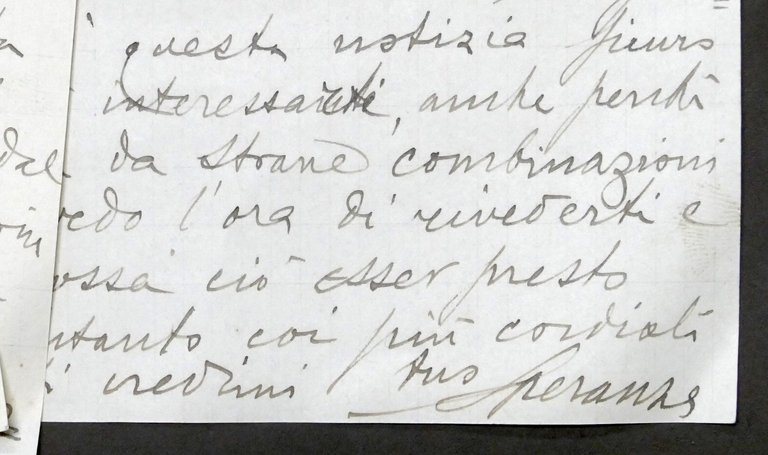 questa notizia sicuro
interessarti, anche perchè
da strane combinazioni
vedo l'ora di rivederti e
possa ciò esser presto
intanto coi più cordiali
credimi tuo Speranza